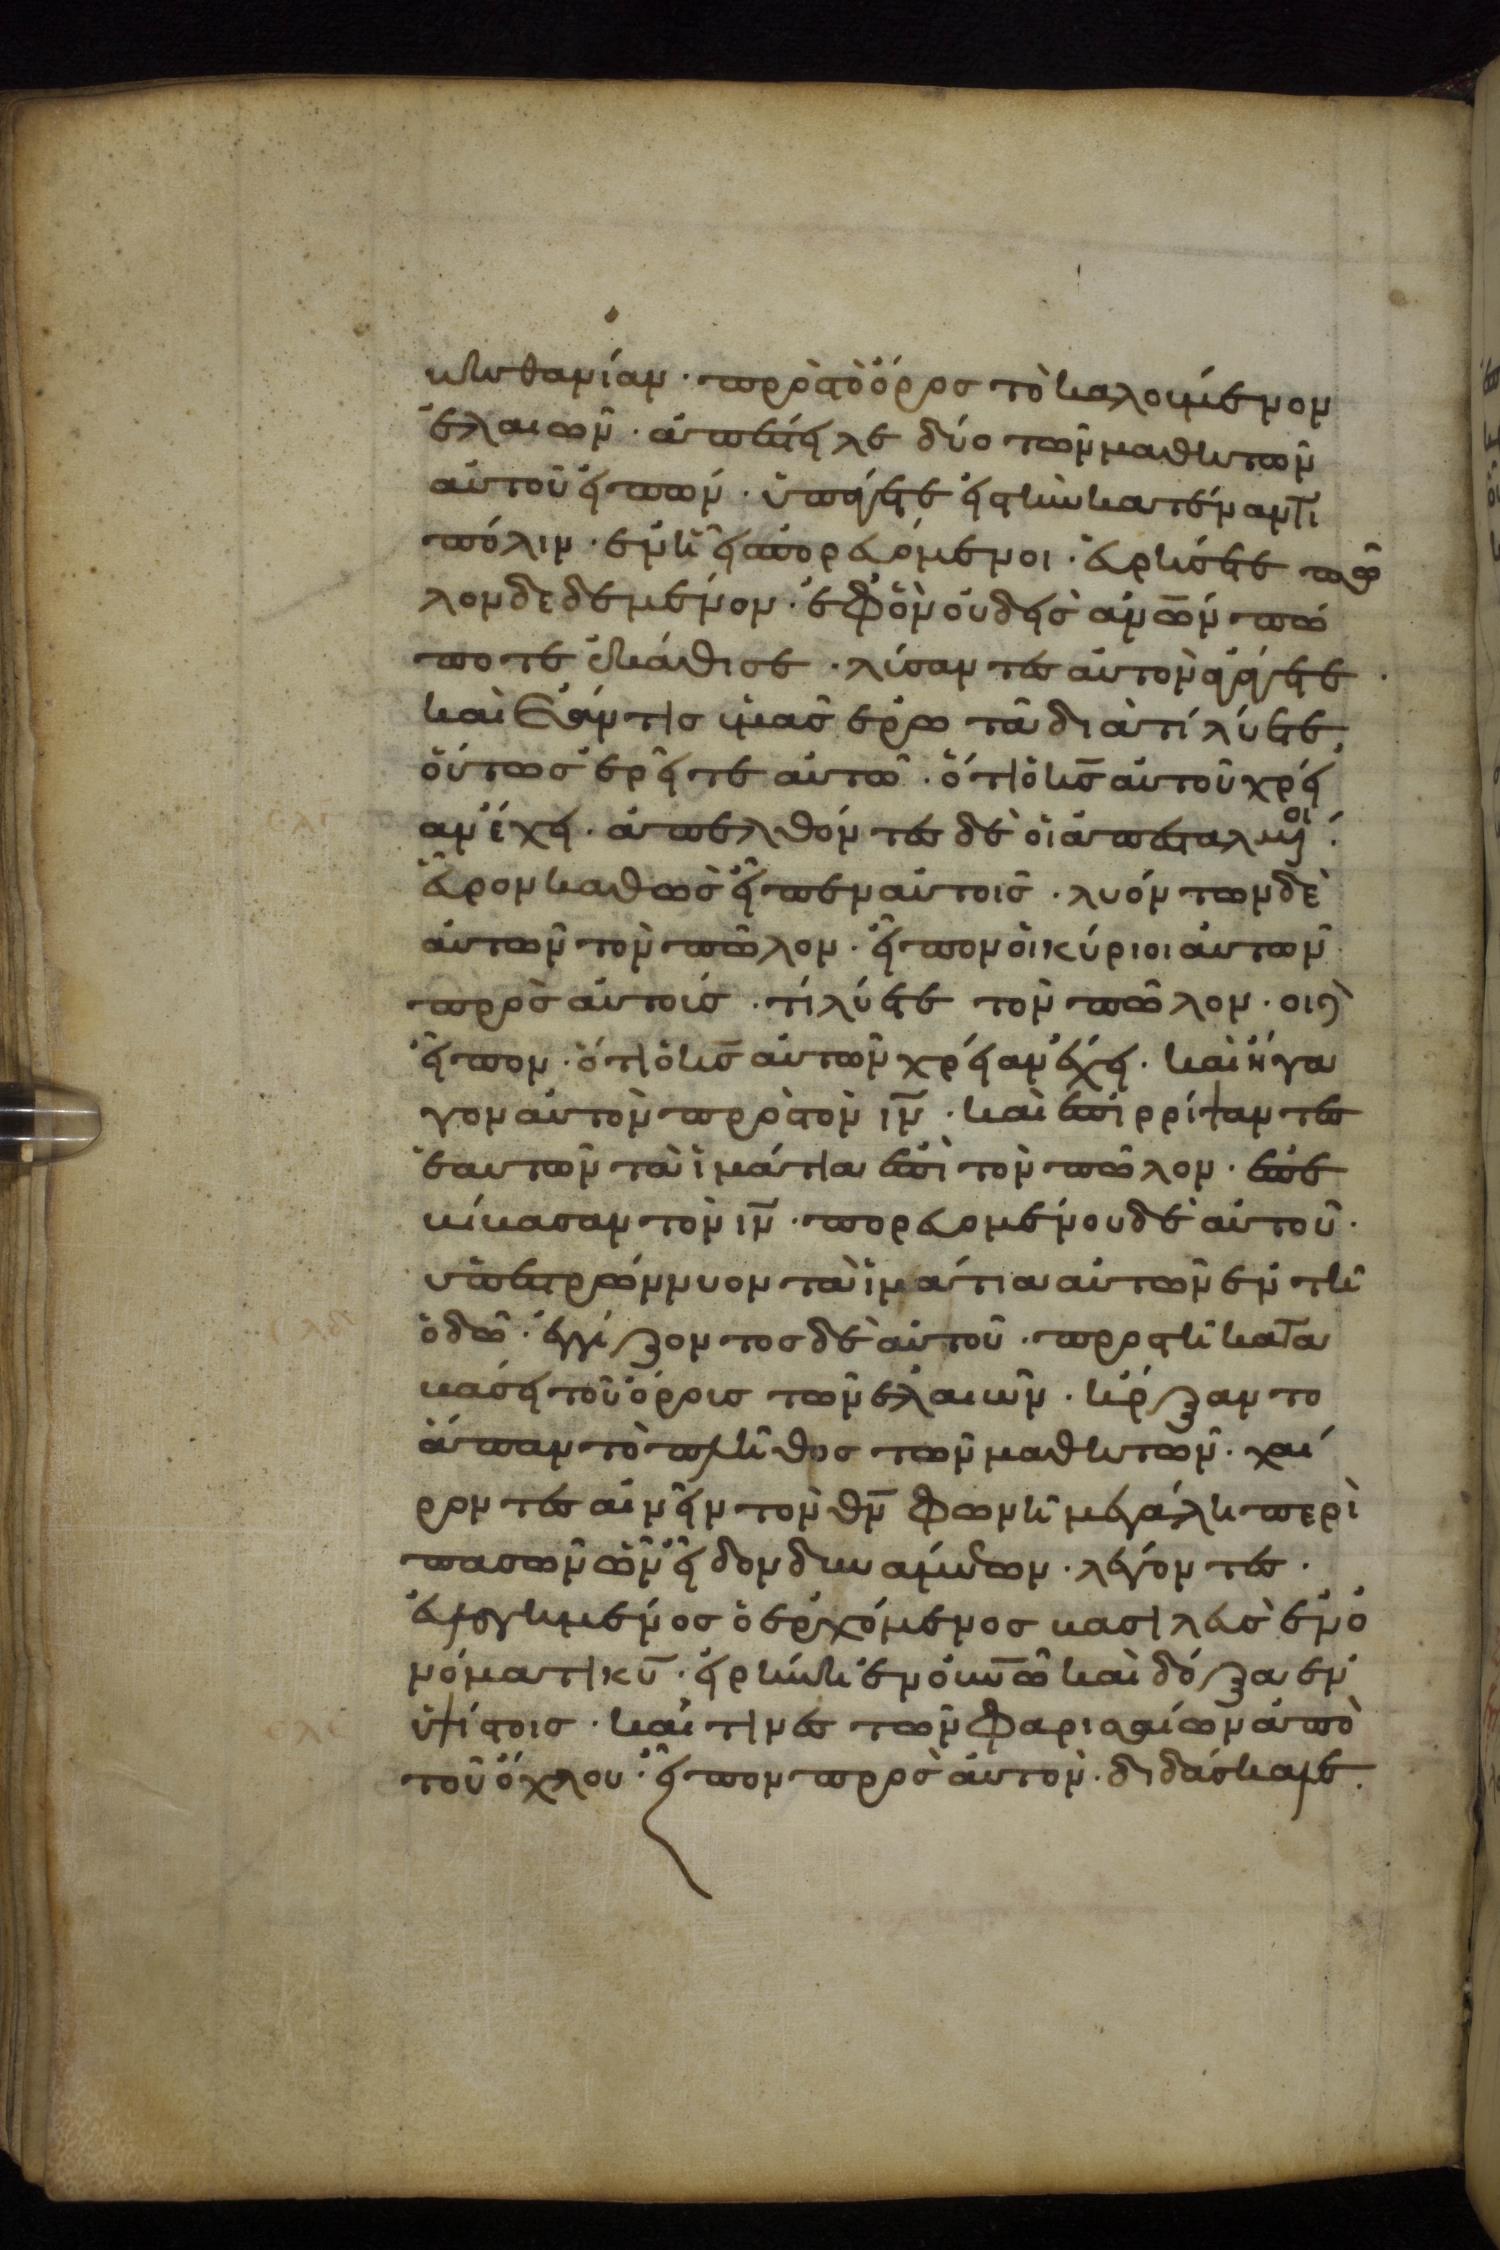 βηθανίαν · πρὸς τὸ ὄρος τὸ καλούμενον
ἐλαιῶν · ἀπέστειλε δύο τῶν μαθητῶν
αὐτοῦ εἰπών · ὑπάγετε εἰς τὴν κατέναντι
πόλιν · ἐν ᾗ εἰσπορευόμενοι · εὑρήσετε πῶ
λον δεδεμένον · ἐφ ὃν οὐδεὶς ἀν̅ω̅ν πώ
ποτε ἐκάθισε · λύσαντες αὐτὸν ἀγάγετε ·
καὶ ἐάν τις ὑμᾶς ἐρωτᾶ διὰ τί λύετε,
οὕτως ἐρεῖτε αὐτῶ · ὅτι ὁ κ̅ς̅ αὐτοῦ χρεί
αν ἔχει · ἀπελθόντες δὲ οἱ ἀπεσταλμένοι :
εὗρον καθὼς εἶπεν αὐτοῖς · λυόντων δὲ
αὐτῶν τὸν πῶλον · εἶπον οἱ κύριοι αὐτῶν
πρὸς αὐτούς · τί λύετε τὸν πῶλον · οἱ δὲ
εἶπον · ὅτι ὁ κ̅ς̅ αὐτῶν χρείαν ἔχει · καὶ ἤγα
γον αὐτὸν πρὸς τὸν ι̅ν̅ · καὶ ἐπιρρίψαντες
ἑαυτῶν τὰ ἱμάτια ἐπὶ τὸν πῶλον · ἐπε
βίβασαν τὸν ι̅ν̅ · πορευομένου δὲ αὐτοῦ ·
ὑπεστρώννυον τὰ ἱμάτια αὐτῶν ἐν τῆ
ὁδῶ · ἐγγίζοντος δὲ αὐτοῦ · πρὸς τῆ κατα
βάσει τοῦ ὄρους τῶν ἐλαιῶν · ἤρξαντο
ἅπαν τὸ πλῆθος τῶν μαθητῶν · χαί
ροντες αἰνεῖν τὸν θ̅ν̅ φωνῆ μεγάλη περὶ
πασῶν ὧν εἶδον δυνάμεων · λέγοντες ·
εὐλογημένος ὁ ἐρχόμενος βασιλεὺς ἐν ὀ
νόματι κ̅υ̅ · εἰρήνη ἐν οὐ̅ν̅ῶ καὶ δόξα ἐν
ὑψίστοις · καί τινες τῶν φαρισαίων ἀπὸ
τοῦ ὄχλου · εἶπον πρὸς αὐτόν · διδάσκαλε ·